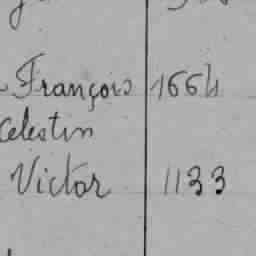 François 1664
Celestin
Victor 1133